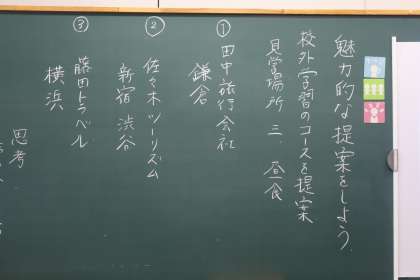 魅力的な提案をしよう.
校外学習のコースを提案
見学場所 三. 昼食
① 田中旅行会社
鎌倉
② 佐々木ツーリズム
新宿 渋谷
③ 藤田トラベル
横浜
思考